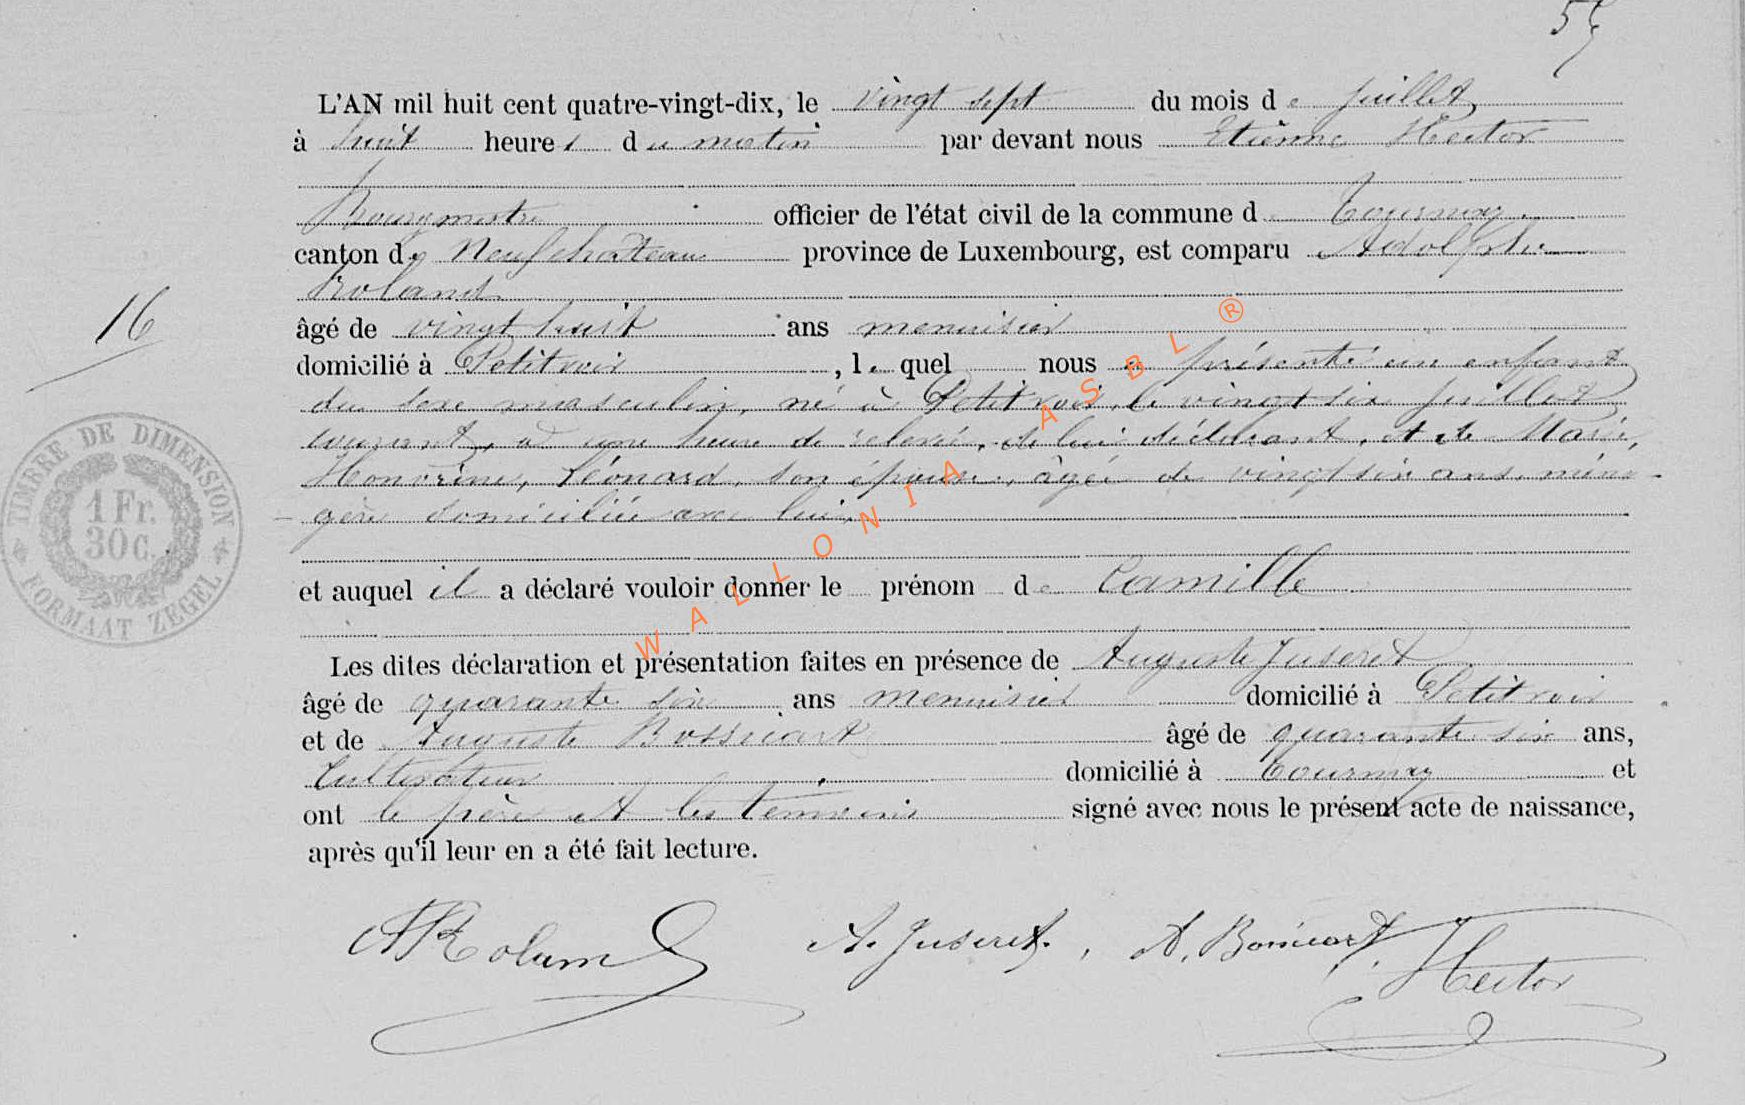 55
L'AN mil huit cent quatre-vingt-dix, le vingt sept du mois de juillet,
à huit heures du matin par devant nous Etienne Hector
Bourgmestre officier de l'état civil de la commune de Tournay,
canton de Neufchateau province de Luxembourg, est comparu Adolphe
Roland
16
âgé de vingt huit ans menuisier
domicilié à Petitvoir, lequel nous a présenté un enfant
du sexe masculin, né à Petitvoir, le vingt six juillet
courant, à une heure de relevée, de lui déclarant, et de Marie,
Honorine, Léonard, son épouse, âgée de vingt six ans, ména-
gère domiciliée avec lui,
TIMBRE DE DIMENSION
1 Fr.
30 C.
FORMAAT ZEGEL
et auquel il a déclaré vouloir donner le prénom de Camille
Les dites déclaration et présentation faites en présence de Auguste Juseret
âgé de quarante six ans menuisier domicilié à Petitvoir
et de Auguste Bossicart âgé de quarante six ans,
Cultivateur domicilié à Tournay et
ont le père et les témoins signé avec nous le présent acte de naissance,
après qu'il leur en a été fait lecture.
A Roland A. Juseret. , A. Bossicart,
Hector
WALLONIA ASBL ®